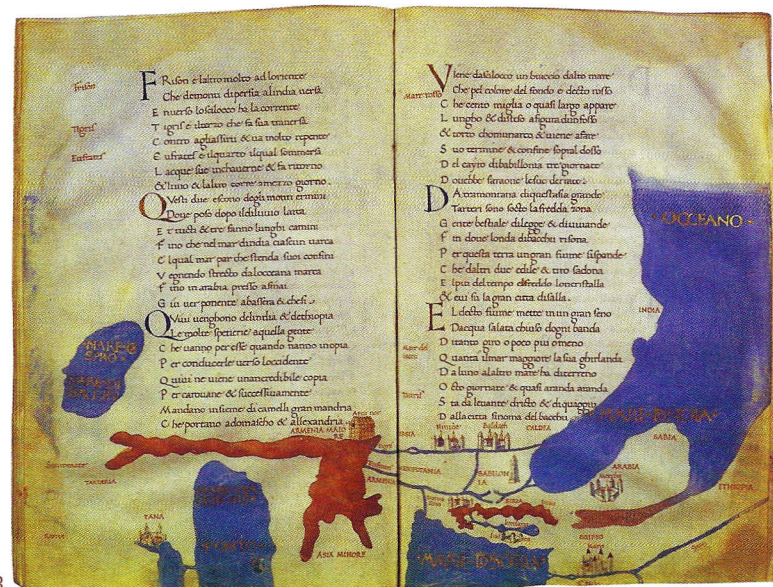 Frison
Tigris
Eufrates
F Rison è laltro molto ad loriente
Che demonti dipersia alindia uersa
E nuerso loscilocco ha la corrente
T igris è ilterzo che fa sua trauersa
C ontro agliassirii & ua molto repente
E ufrates è ilquarto ilqual sommersa
L acque sue inchauerne & fa ritorno
& luno & laltro corre amezo giorno
Q Vesti due escono degli monti ermini
Doue poso dopo ildiluuio larca
E t tucti & tre fanno lunghi camini
F ino che nel mar dundia ciascun uarca
C lqual mar par che stenda suoi confini
V egnendo strecto da loceana marca
F ino in arabia presso afinai
G iu uer ponente abassera & chesi
Q Viui uengbono delindia & dethiopia
Le molte spetierie aquella gente
C he uanno per esse quando nanno inopia
P er conducerle uerso loccidente
Q uiui ne uiene una incredibile copia
P er carouane & successiuamente
Mandano insieme di camelli gran mandria
C he portano adomascho & allexandria
Mare rosso
V Iene dascilocco un braccio dalto mare
Che pel colore del fondo è decto rosso
C he cento miglia o quasi largo appare
L ungho & disteso afigura dun fosso
& torto chominarca & uiene afare
S uo termine & confine sopral dosso
D el cayro dibabillonia tre giornate
D ouebbe faraone le sue derrate
D A tramontana diquesta sia grande
Tarteri sono socto la fredda zona
G ente bestiale dilegge & diuiuande
F in doue londa dibacchu risona
P er questa terra un gran fiume si spande
C he daltri due edile & tiro sadona
E lpiu del tempo elfreddo loncristalla
& eui su la gran citta disalla
E L decto fiume mette in un gran seno
Dacqua salata chiuso dogni banda
D i tanto giro o poco piu o meno
Q uanta ilmar maggiore la sua ghirlanda
D a luno alaltro mare ha diterreno
O cto giornate & quasi aranda aranda
S ta da leuante dricto & di quaggiu
D alla citta sinoma del bacchu
OCCEANO
INDIA
MARE DINDIA
SABIA
ARABIA
ETHIOPIA
ARMENIA MAIORE
INDIA
CALDEA
BABILONIA
ARMENIA
SIRIA
EGIPTO
TARTERIA
TANA
ASIA MINORE
MARE DISORIA